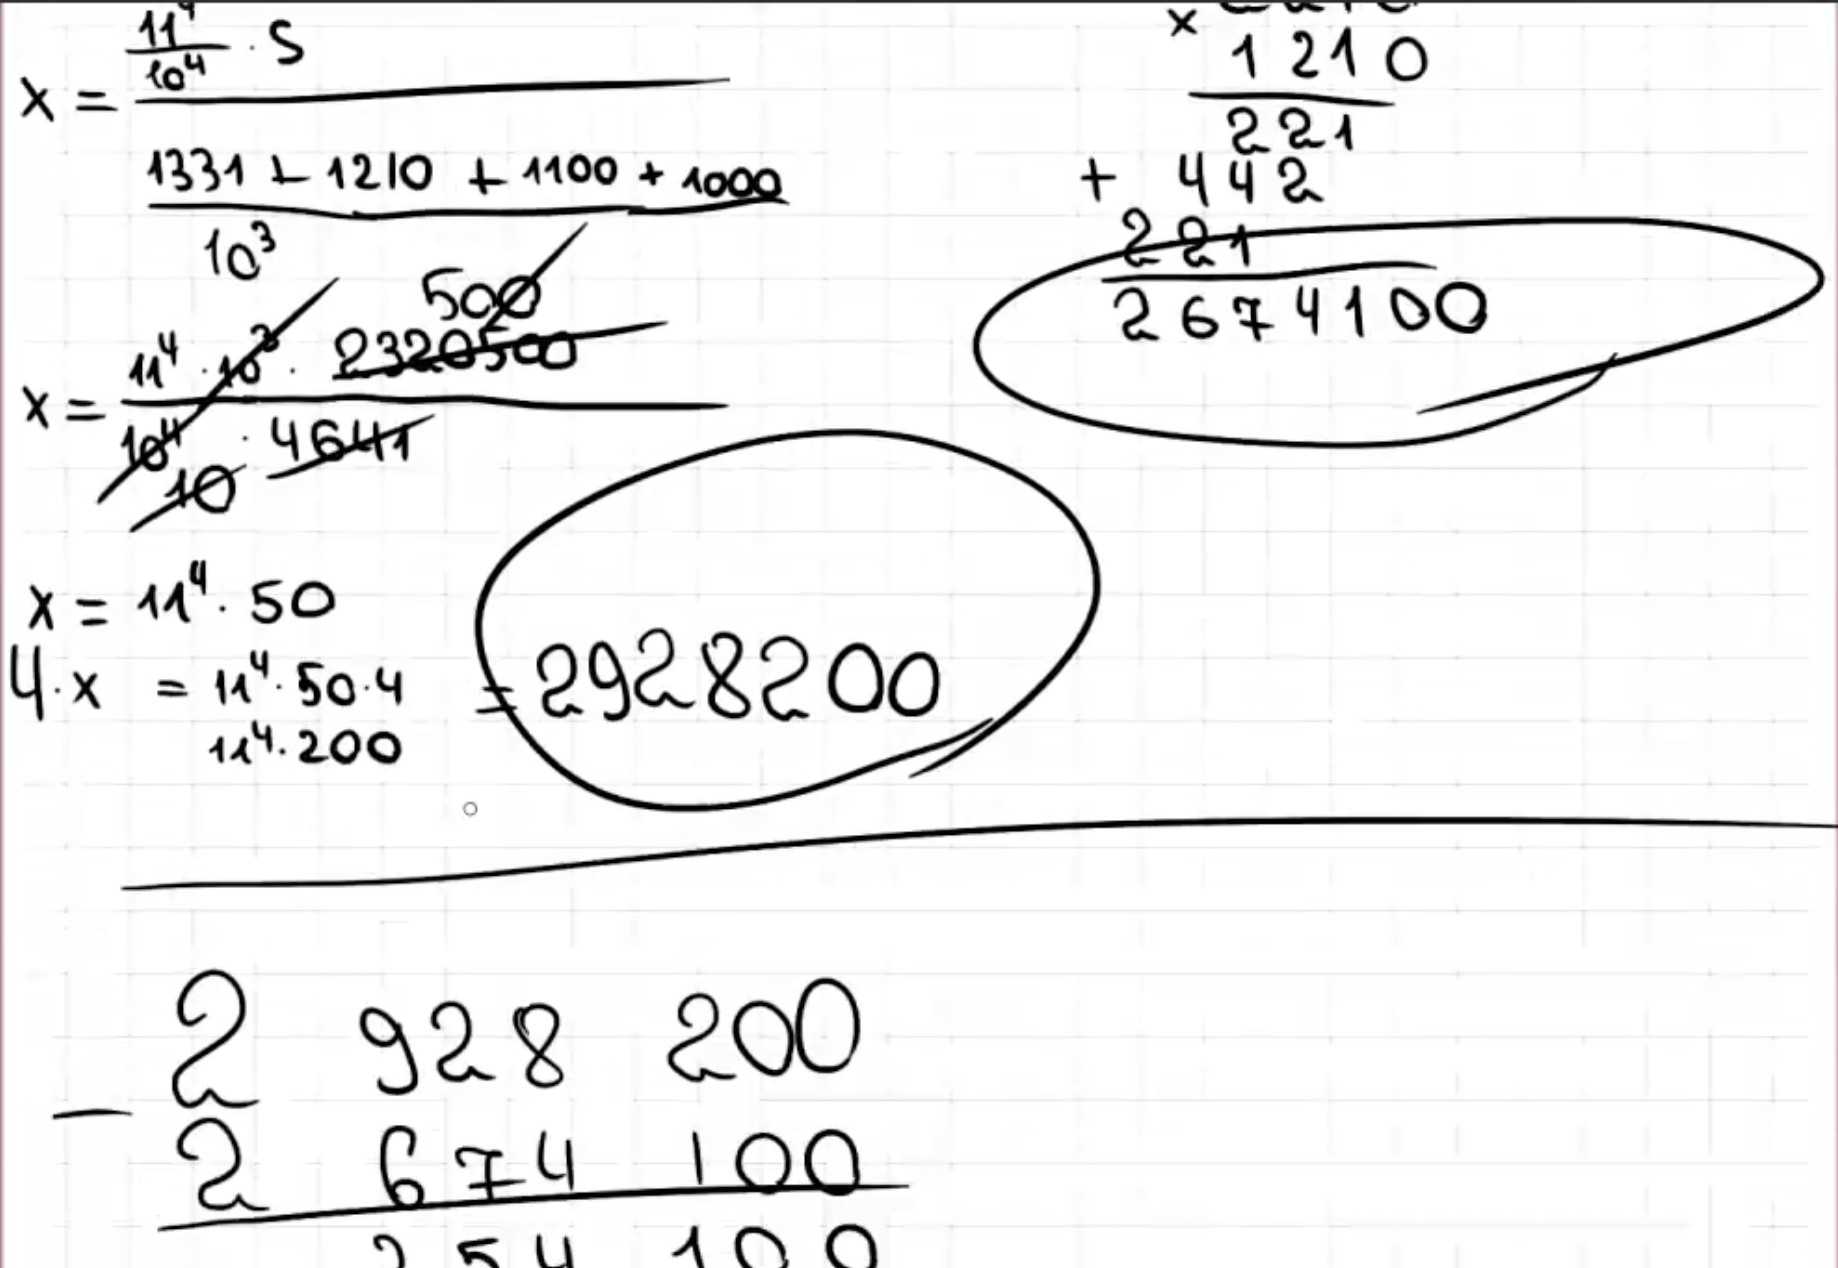 11⁴/10⁴ · S
x =
1331 + 1210 + 1100 + 1000
10³
500
11⁴ · 10³ · 2320500
x =
10⁴ · 4641
10
x = 11⁴ · 50
4 · x = 11⁴ · 50 · 4 = 2928200
11⁴ · 200
×
1210
221
+ 442
221
2674100
2 928 200
−
2 674 100
254 100